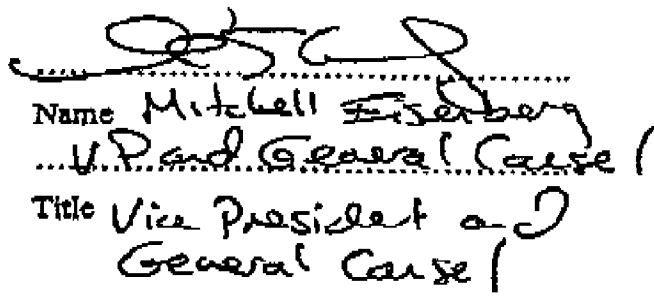 Name Mitchell Eisenberg
V.P and General Counsel
Title Vice President and
General Counsel